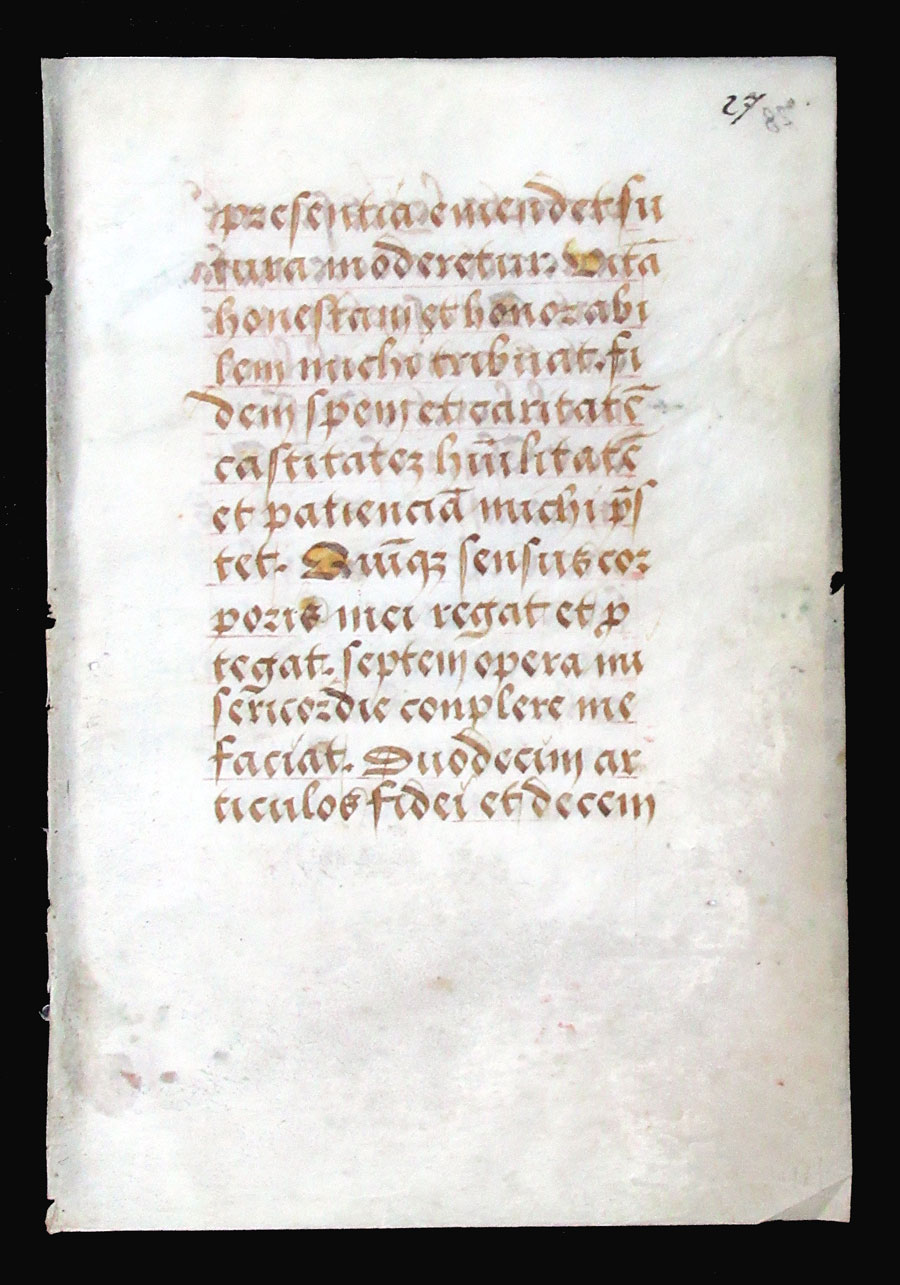 27
presentia emendet fu
tura moderetur. Vitā
honestam et honorabi
lem michi tribuat. fi
dem spem et caritatē
castitatez hūilitatē
et patienciā michi p̄s
tet. Quīqꝫ sensus cor
poris mei regat et ꝓ
tegat. septem opera mi
sericordie conplere me
faciat. Duodecim ar
ticulos fidei et decem